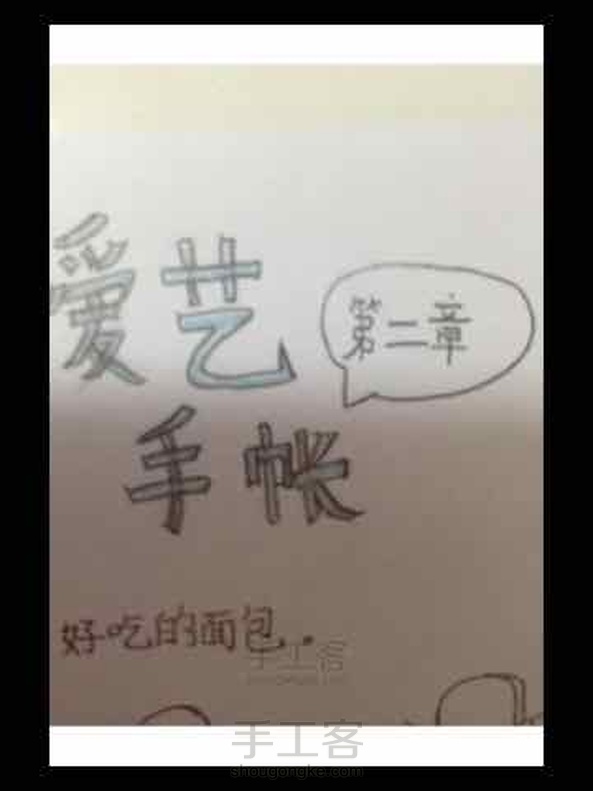 爱艺
第二章
手帐
好吃的面包.
手工客
手工客
shougongke.com